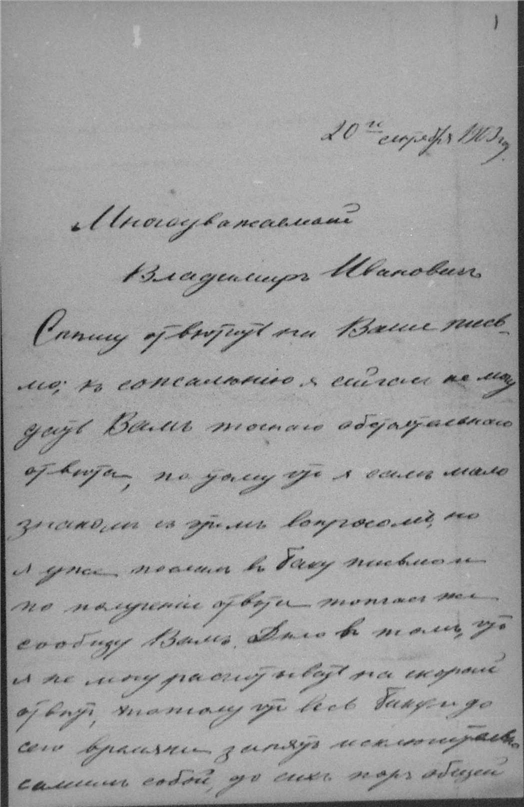 1
20го октября 1903 г.
Многоуважаемый
Владимиръ Ивановичъ
Спѣшу отвѣтить на Ваше пись-
мо; къ сожалѣнію я сейчасъ не могу
дать Вамъ точнаго обстоятельнаго
отвѣта, по тому что я самъ мало
знакомъ съ этимъ вопросомъ, но
я уже послалъ въ Баку письмо и
по полученіи отвѣта тотчасъ же
сообщу Вамъ. Дѣло въ томъ, что
я не могу расчитывать на скорый
отвѣтъ, потому что весь Баку до
сего времяни занятъ исключительно
самимъ собой, до сихъ поръ общей